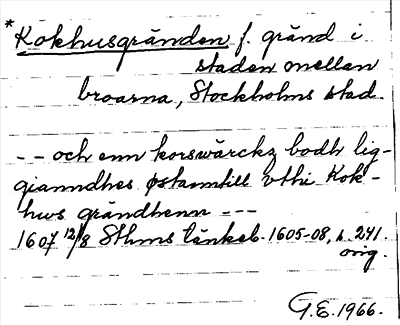 *Kokhusgränden f. gränd i
staden mellan
broarna, Stockholms stad.
-- och enn korswärckz bodh lig-
gianndhes østanntill vthi Kok-
hws grändhenn ---
1607 12/8 Sthms tänkeb. 1605-08, s. 241.
orig.
G.E. 1966.